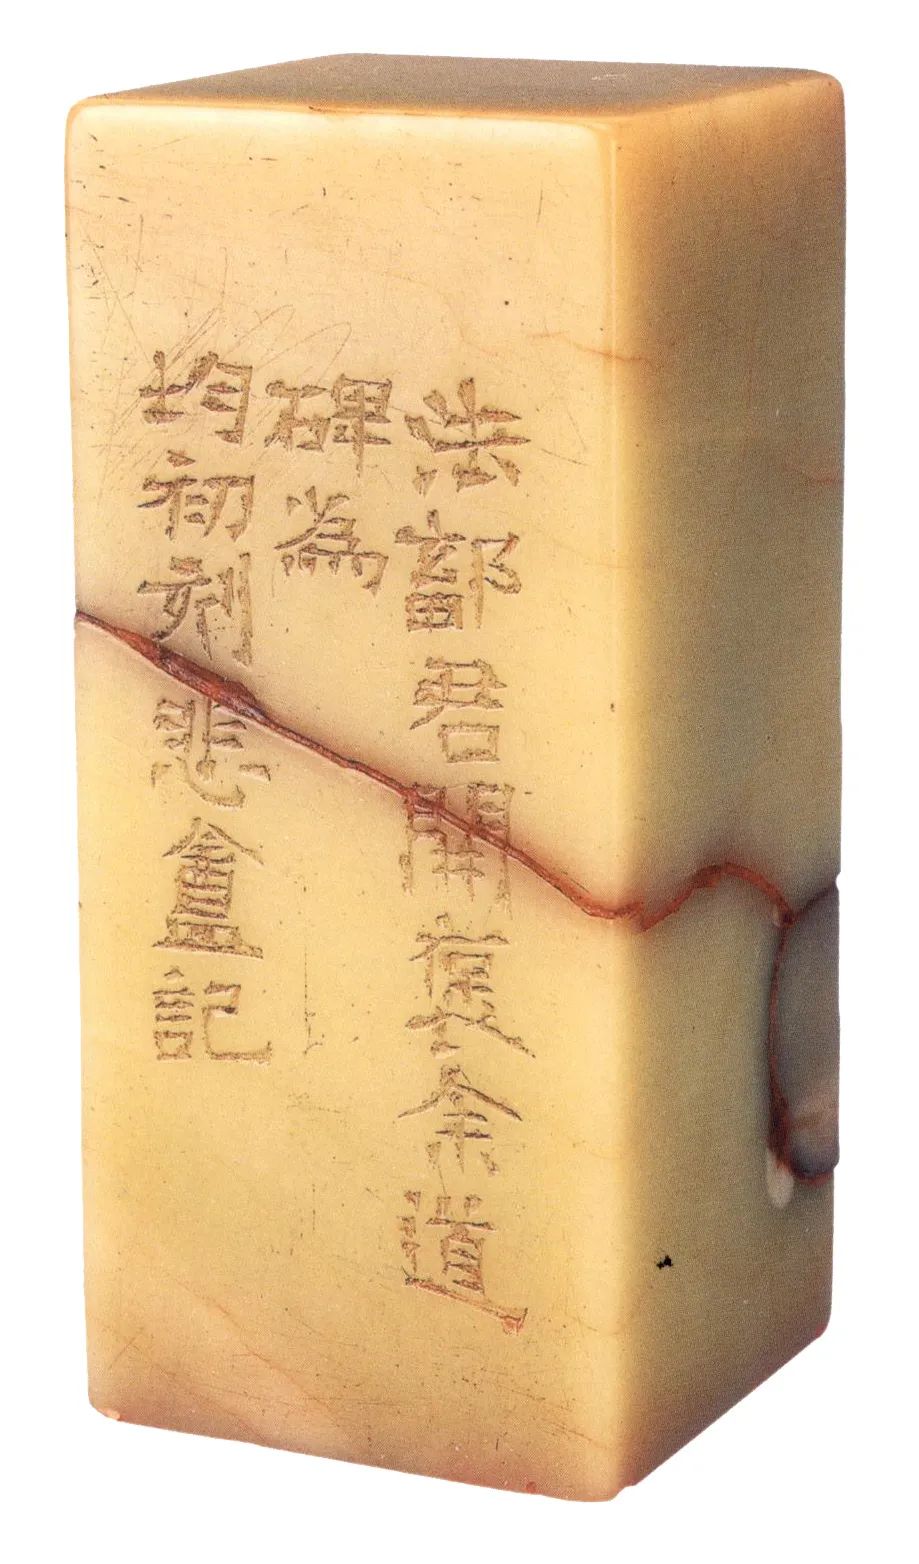 法鄐君開褎余道
碑為
均初刻悲盦記